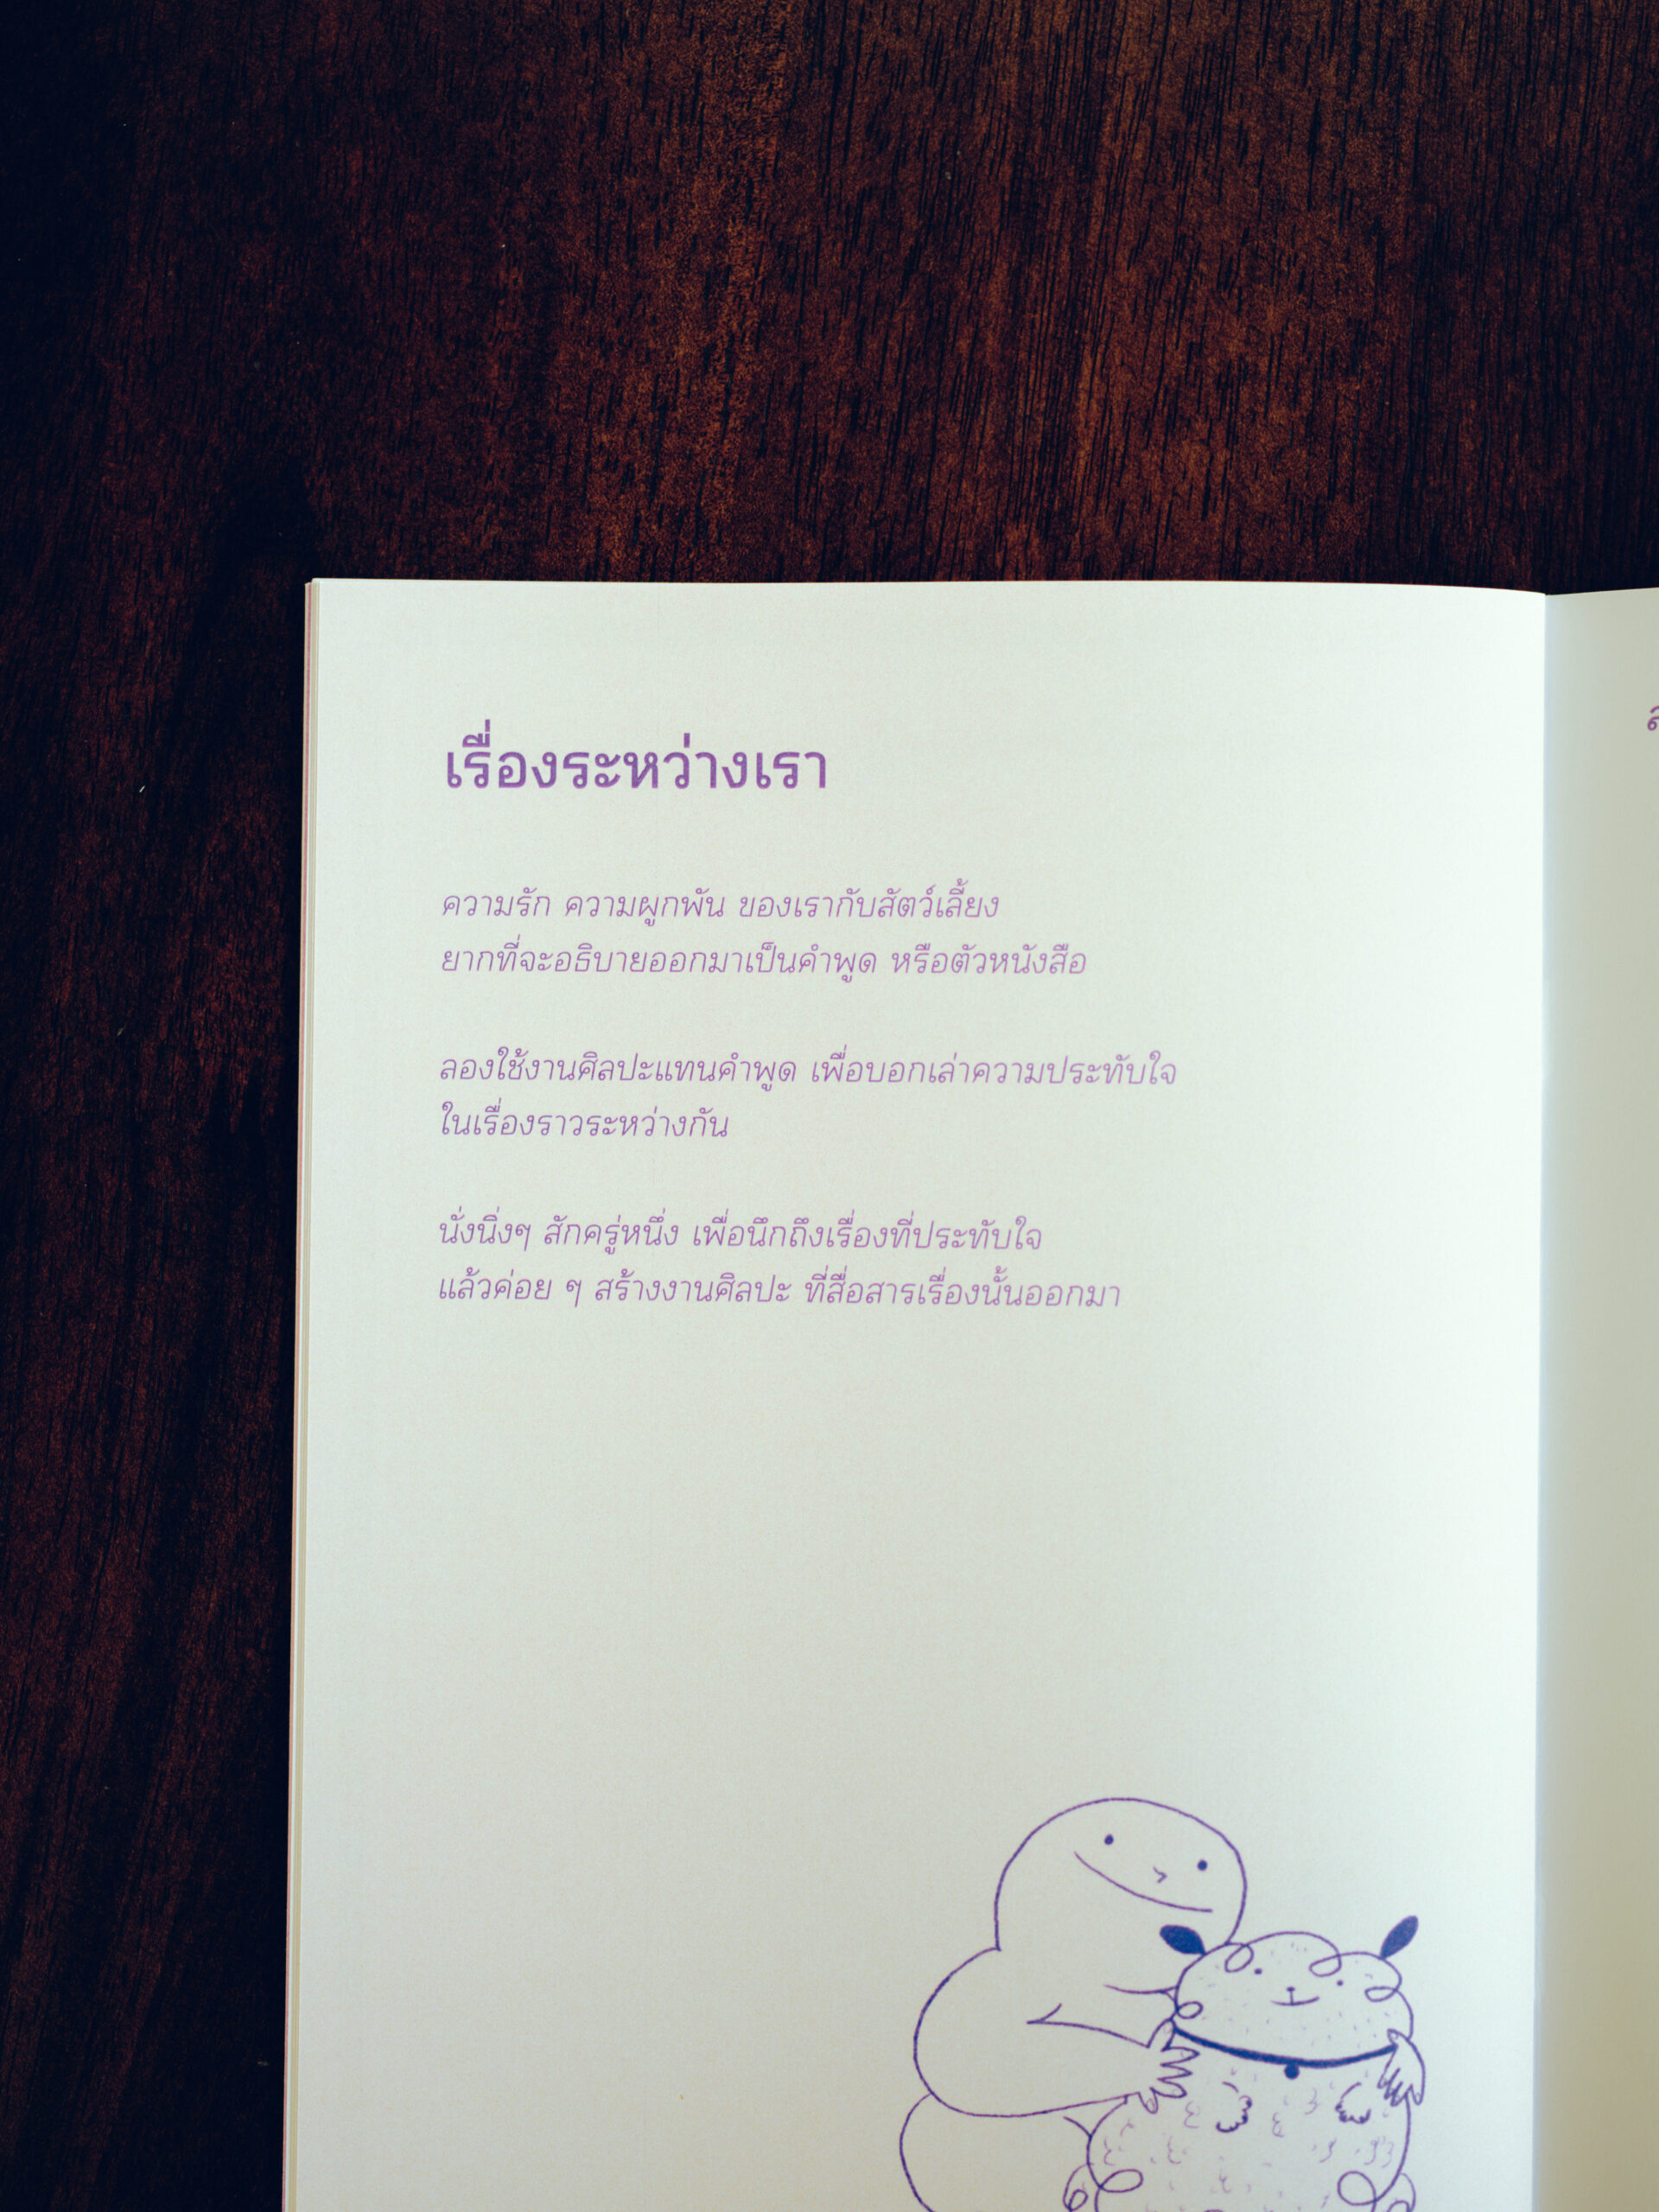 เรื่องระหว่างเรา
ความรัก ความผูกพัน ของเรากับสัตว์เลี้ยง
ยากที่จะอธิบายออกมาเป็นคำพูด หรือตัวหนังสือ
ลองใช้งานศิลปะแทนคำพูด เพื่อบอกเล่าความประทับใจ
ในเรื่องราวระหว่างกัน
นั่งนิ่งๆ สักครู่หนึ่ง เพื่อนึกถึงเรื่องที่ประทับใจ
แล้วค่อย ๆ สร้างงานศิลปะ ที่สื่อสารเรื่องนั้นออกมา